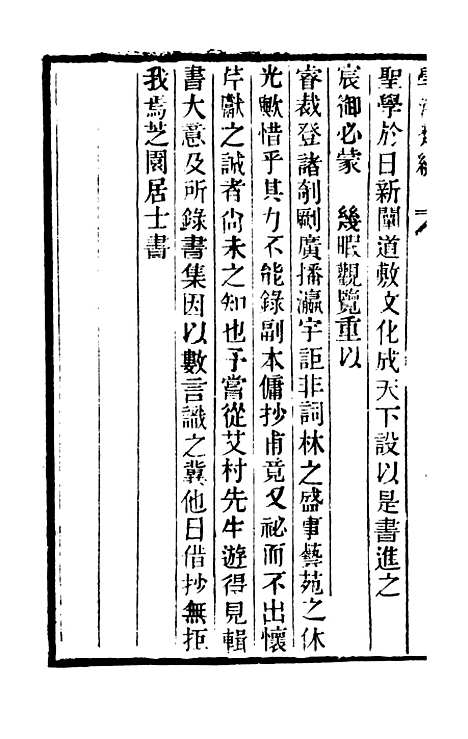 聖學於日新闡道敷文化成天下設以是書進之
宸御必蒙　幾暇觀覽重以
睿裁登諸剞劂廣播瀛宇詎非詞林之盛事藝苑之休
光歟惜乎其力不能錄副本傭抄甫竟又祕而不出懷
芹獻之誠者尙未之知也予嘗從艾村先生遊得見輯
書大意及所錄書集因以數言識之冀他日借抄無拒
我焉芝園居士書